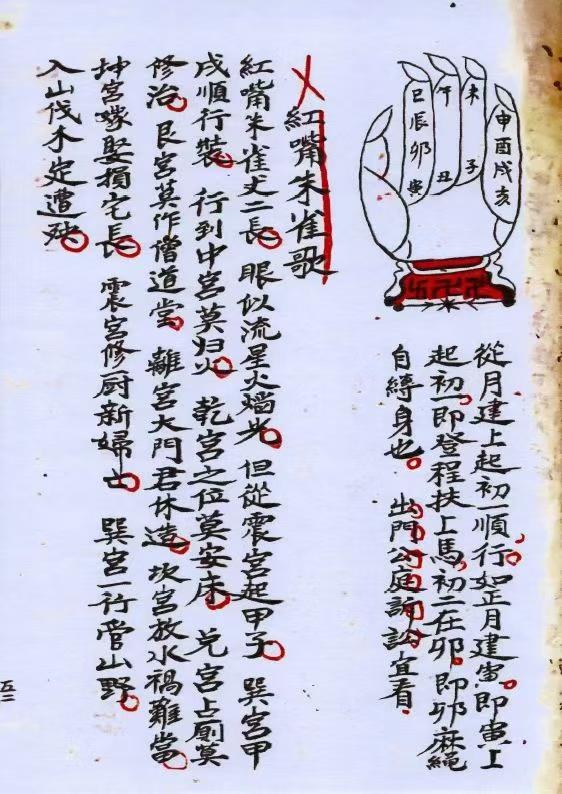 申酉戌亥
未子
午丑
巳辰卯寅
從月建上起初一順行。如正月建寅。即寅上
起初一即登程扶上馬。初二在卯。即卯麻繩
自縛身也。 出門公庭訴訟宜看。
紅嘴朱雀歌
紅嘴朱雀丈二長。眼似流星火焰光。但從震宮起甲子。巽宮甲
戌順行裝。行到中宮莫归火。乾宮之位莫安床。兌宮上廁莫
修治。艮宮莫作僧道堂。離宮大門君休造。坎宮放水禍難當。
坤宮嫁娶損宅長。震宮修厨新婦亡。巽宮一行管山野。
入山伐木定遭殃。
五二